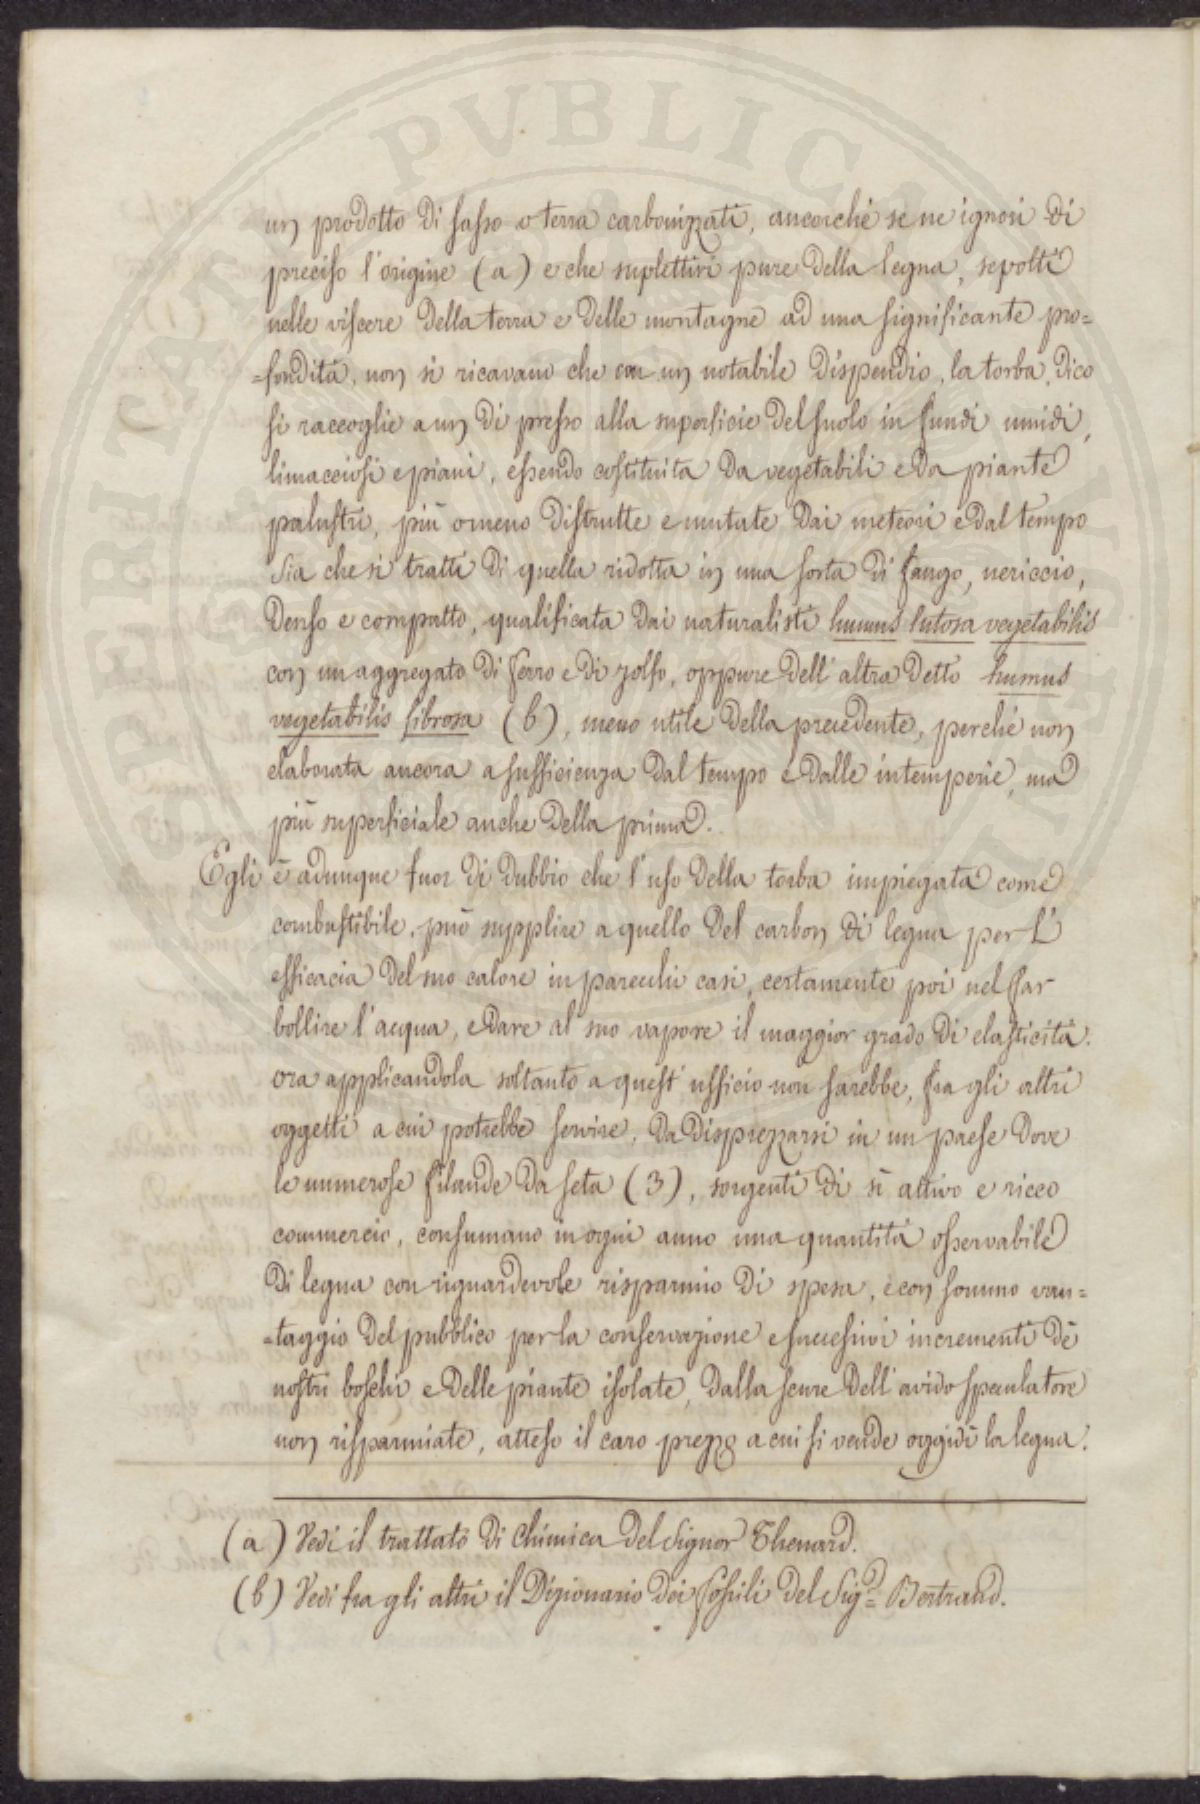 PVBLICA
VNICHE
PROSPERITATI
un prodotto di sasso o terra carbonizzati, ancorché se ne ignori di
preciso l'origine (a) e che suplettivi pure della legna, sepolti
nelle viscere della terra e delle montagne ad una significante pro=
=fondità, non si ricavano che con un notabile dispendio, la torba, dico
si raccoglie a un di presso alla superficie del suolo in fundi umidi,
limacciosi e piani, essendo costituita da vegetabili e da piante
palustri, più o meno distrutte e mutate dai meteori e dal tempo
Sia che si tratti di quella ridotta in una sorta di fango, nericcio,
denso e compatto, qualificata dai naturalisti humus lutosa vegetabilis
con un aggregato di ferro e di zolfo, oppure dell'altra detto humus
vegetabilis fibrosa (b), meno utile della precedente, perché non
elaborata ancora a sufficienza dal tempo e dalle intemperie, ma
più superficiale anche della prima.
Egli è adunque fuor di dubbio che l'uso della torba impiegata come
combustibile, può supplire a quello del carbon di legna per l'
efficacia del suo calore in parecchi casi, certamente poi nel far
bollire l'acqua, e dare al suo vapore il maggior grado di elasticità.
ora applicandola soltanto a quest'ufficio non sarebbe, fra gli altri
oggetti a cui potrebbe servire, da disprezzarsi in un paese dove
le numerose filande da seta (3), sorgenti di sì attivo e ricco
commercio, consumano in ogni anno una quantità osservabile
di legna con riguardevole risparmio di spesa, e con sommo van=
=taggio del pubblico per la conservazione e successivi incrementi de'
nostri boschi e delle piante isolate, dalla scure dell'avido speculatore
non risparmiate, atteso il caro prezzo a cui si vende oggidì la legna.
(a) Vedi il trattato di Chimica del Signor Thenard.
(b) Vedi fra gli altri il Dizionario dei fossili del Sig.r Bertrand.